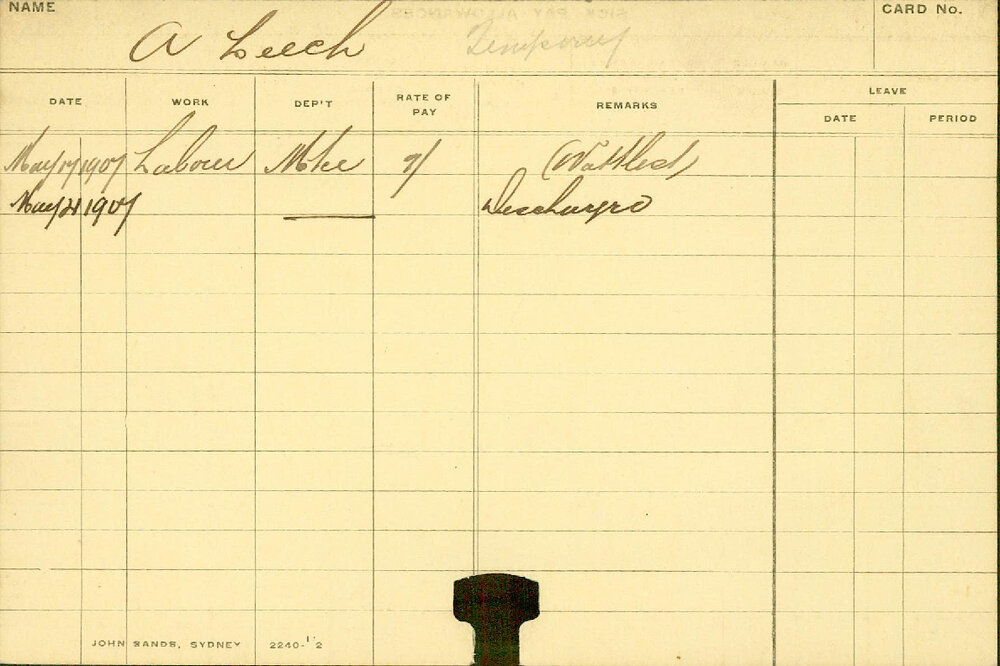 NAME A Leech Temporary CARD No.
DATE WORK DEP'T RATE OF PAY REMARKS LEAVE
DATE PERIOD
May 17 1907 Labour 7/ (Wattled)
May 21 1907 —— Discharged
JOHN SANDS, SYDNEY 2240-12